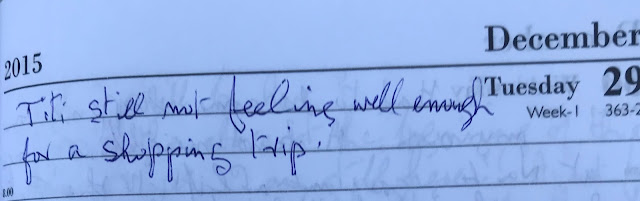 December
2015
Tuesday 29
Week-1 363-2
Titi still not feeling well enough
for a shopping trip.
8.00